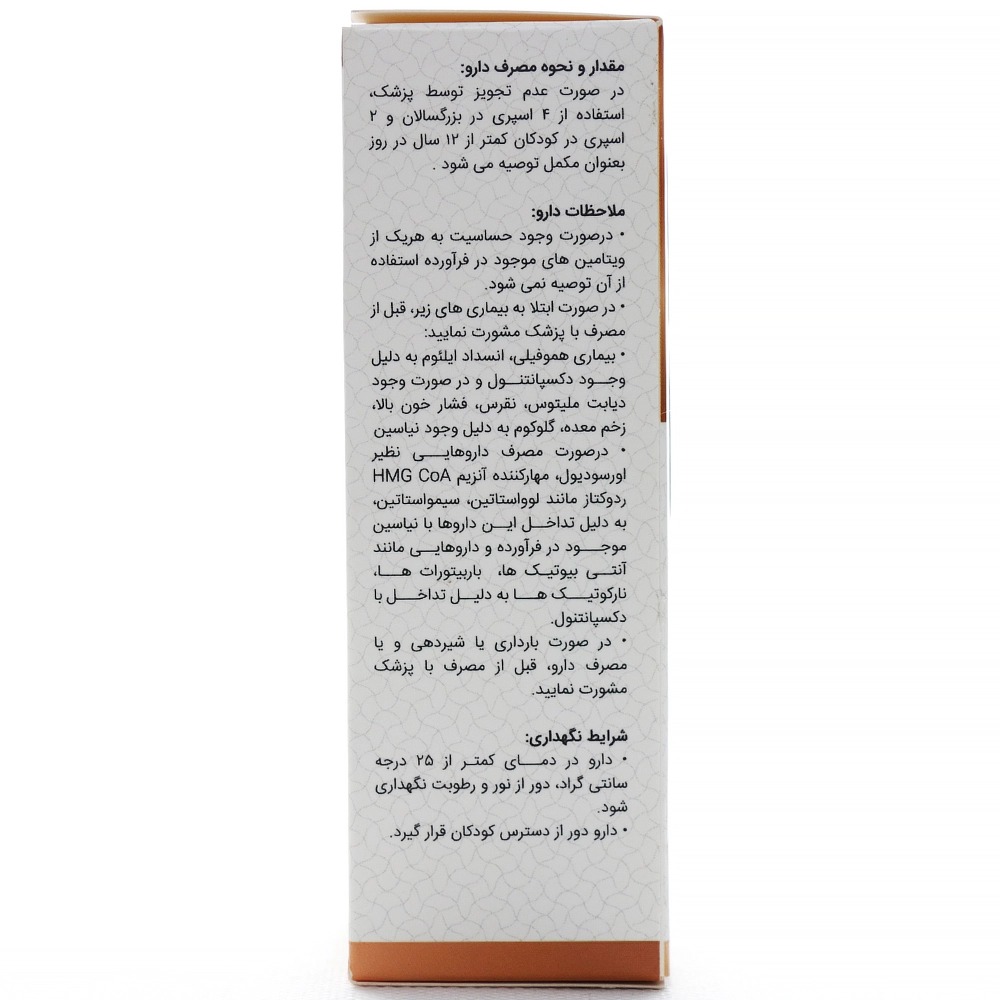 مقدار و نحوه مصرف دارو:
در صورت عدم تجویز توسط پزشک،
استفاده از ۴ اسپری در بزرگسالان و ۲
اسپری در کودکان کمتر از ۱۲ سال در روز
بعنوان مکمل توصیه می شود .
ملاحظات دارو:
• درصورت وجود حساسیت به هریک از
ویتامین های موجود در فرآورده استفاده
از آن توصیه نمی شود.
• در صورت ابتلا به بیماری های زیر، قبل از
مصرف با پزشک مشورت نمایید:
• بیماری هموفیلی، انسداد ایلئوم به دلیل
وجـــود دکسپانتنــول و در صورت وجود
دیابت ملیتوس، نقرس، فشار خون بالا،
زخم معده، گلوکوم به دلیل وجود نیاسین
• درصورت مصرف داروهایــی نظیر
اورسودیول، مهارکننده آنزیم HMG CoA
ردوکتاز مانند لوواستاتین، سیمواستاتین،
به دلیل تداخــل ایــن داروها با نیاسین
موجـــود در فرآورده و داروهایــی مانند
آنتــی بیوتیــک ها، باربیتورات هــا،
نارکوتیـــک هــا به دلیــل تداخــل با
دکسپانتنول.
• در صورت بارداری یا شیردهی و یا
مصرف دارو، قبل از مصرف با پزشک
مشورت نمایید.
شرایط نگهداری:
• دارو در دمـــای کمتـر از ۲۵ درجه
سانتی گراد، دور از نور و رطوبت نگهداری
شود.
• دارو دور از دسترس کودکان قرار گیرد.